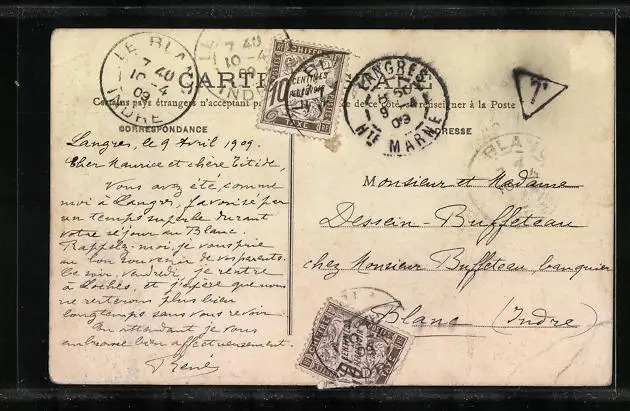 LE BLANC
7 40
10 - 4
09
INDRE
7 40
10 - 4
IND
CARTE
CHIFFRE
10
CENTIMES
À PERCEVOIR
TAXE
LANGRES
9 - 4
09
Hte MARNE
T
Certains pays étrangers n'acceptent pas
de ce côté se renseigner à la Poste
CORRESPONDANCE
ADRESSE
Langres, le 9 Avril 1909.
Cher Maurice et chère Titide,
Vous avez été, comme
moi à Langres, favorisé par
un temps superbe durant
votre séjour au Blanc.
Rappelez-moi, je vous prie
au bon souvenir de vos parents.
Ce soir, vendredi, je rentre
à Loches, et j'espère que nous
ne resterons plus bien
longtemps sans vous revoir.
En attendant je vous
embrasse bien affectueusement.
René
BLANC
Monsieur et Madame
Dessein-Buffeteau
chez Monsieur Buffeteau banquier
Blanc (Indre)
10
CENTIMES
À PERCEVOIR